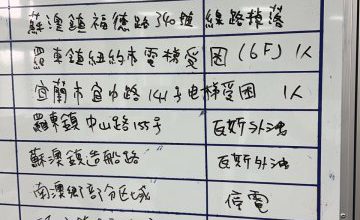 蘇澳鎮福德路340號 線路掉落
羅東鎮紐約市電梯受困(6F)1人
宜蘭市宜中路141号电梯受困 1人
羅東鎮中山路155号 瓦斯外洩
蘇澳鎮造船路 瓦斯外洩
南澳鄉部分区域 停電